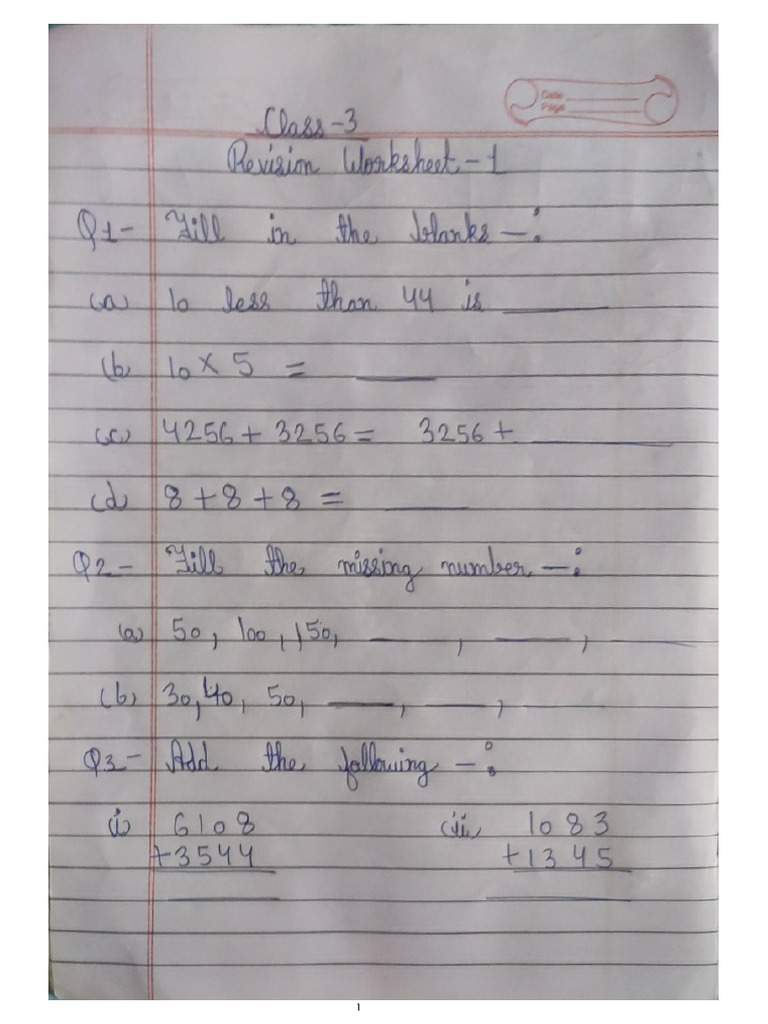 Date
Page
Class-3
Revision Worksheet-1
Q1- Fill in the blanks -:
(a) 10 less than 44 is ______
(b) 10 × 5 = ______
(c) 4256 + 3256 = 3256 + ______
(d) 8 + 8 + 8 = ______
Q2- Fill the missing number -:
(a) 50, 100, 150, ____, ____, ____
(b) 30, 40, 50, ____, ____, ____
Q3- Add the following -:
(i) 6108 (ii) 1083
+3544 +1345
1